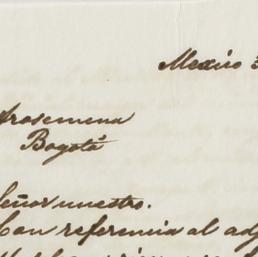 Mexico 3
Arosemena
Bogotá
Señor nuestro.
Con referencia al adj